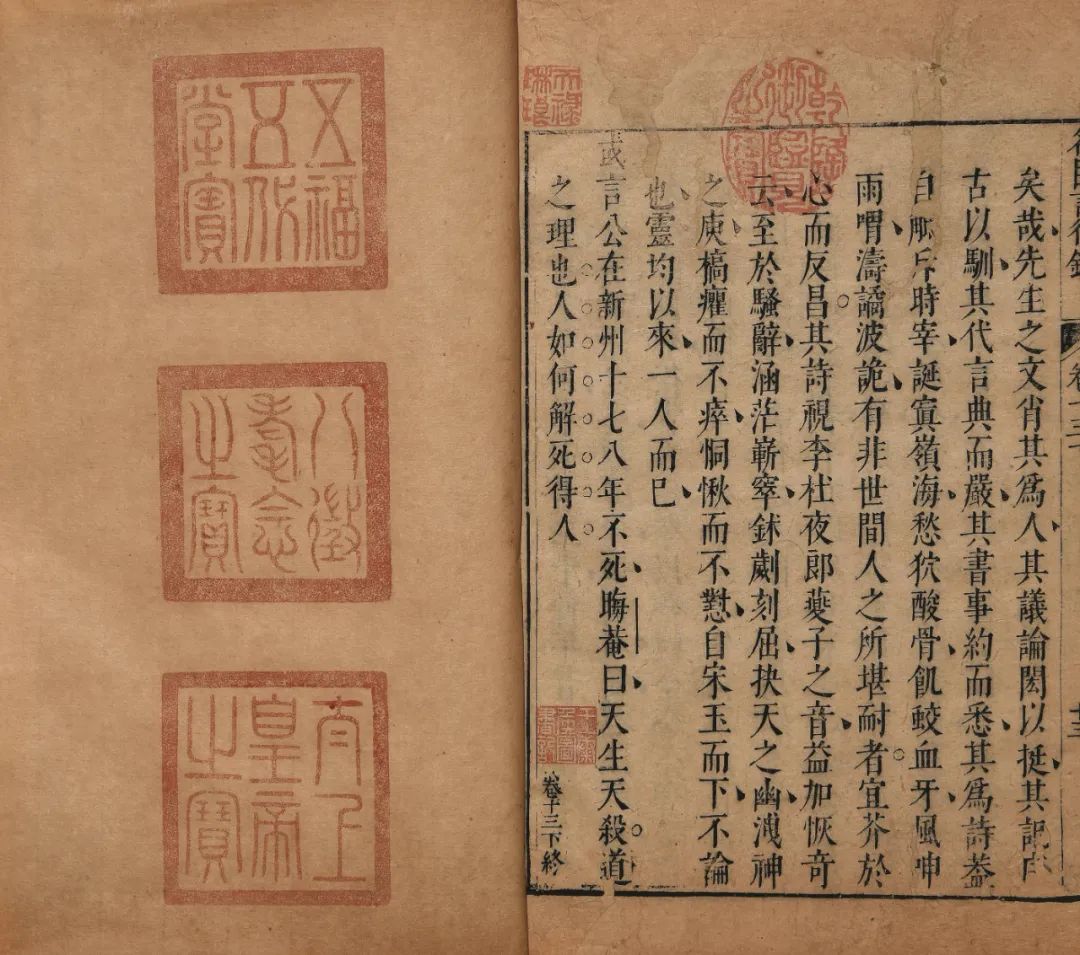 矣哉先生之文肖其爲人其議論閎以挺其記序
古以馴其代言典而嚴其書事約而悉其爲詩蓋
自觝斥時宰誕寘嶺海愁狖酸骨飢蛟血牙風呻
雨喟濤譎波詭有非世間人之所堪耐者宜芥於
心而反昌其詩視李杜夜郎夔子之音益加恢奇
云至於騷辭涵茫嶄窣鉥劌刻屈抉天之幽洩神
之庾槁癯而不瘁恫愀而不懟自宋玉而下不論
也靈均以來一人而已
或言公在新州十七八年不死晦菴曰天生天殺道
之理也人如何解死得人
卷十三下終
乾隆御覽之寶
天祿琳琅
五福五代堂寶
八徵耄念之寶
太上皇帝之寶